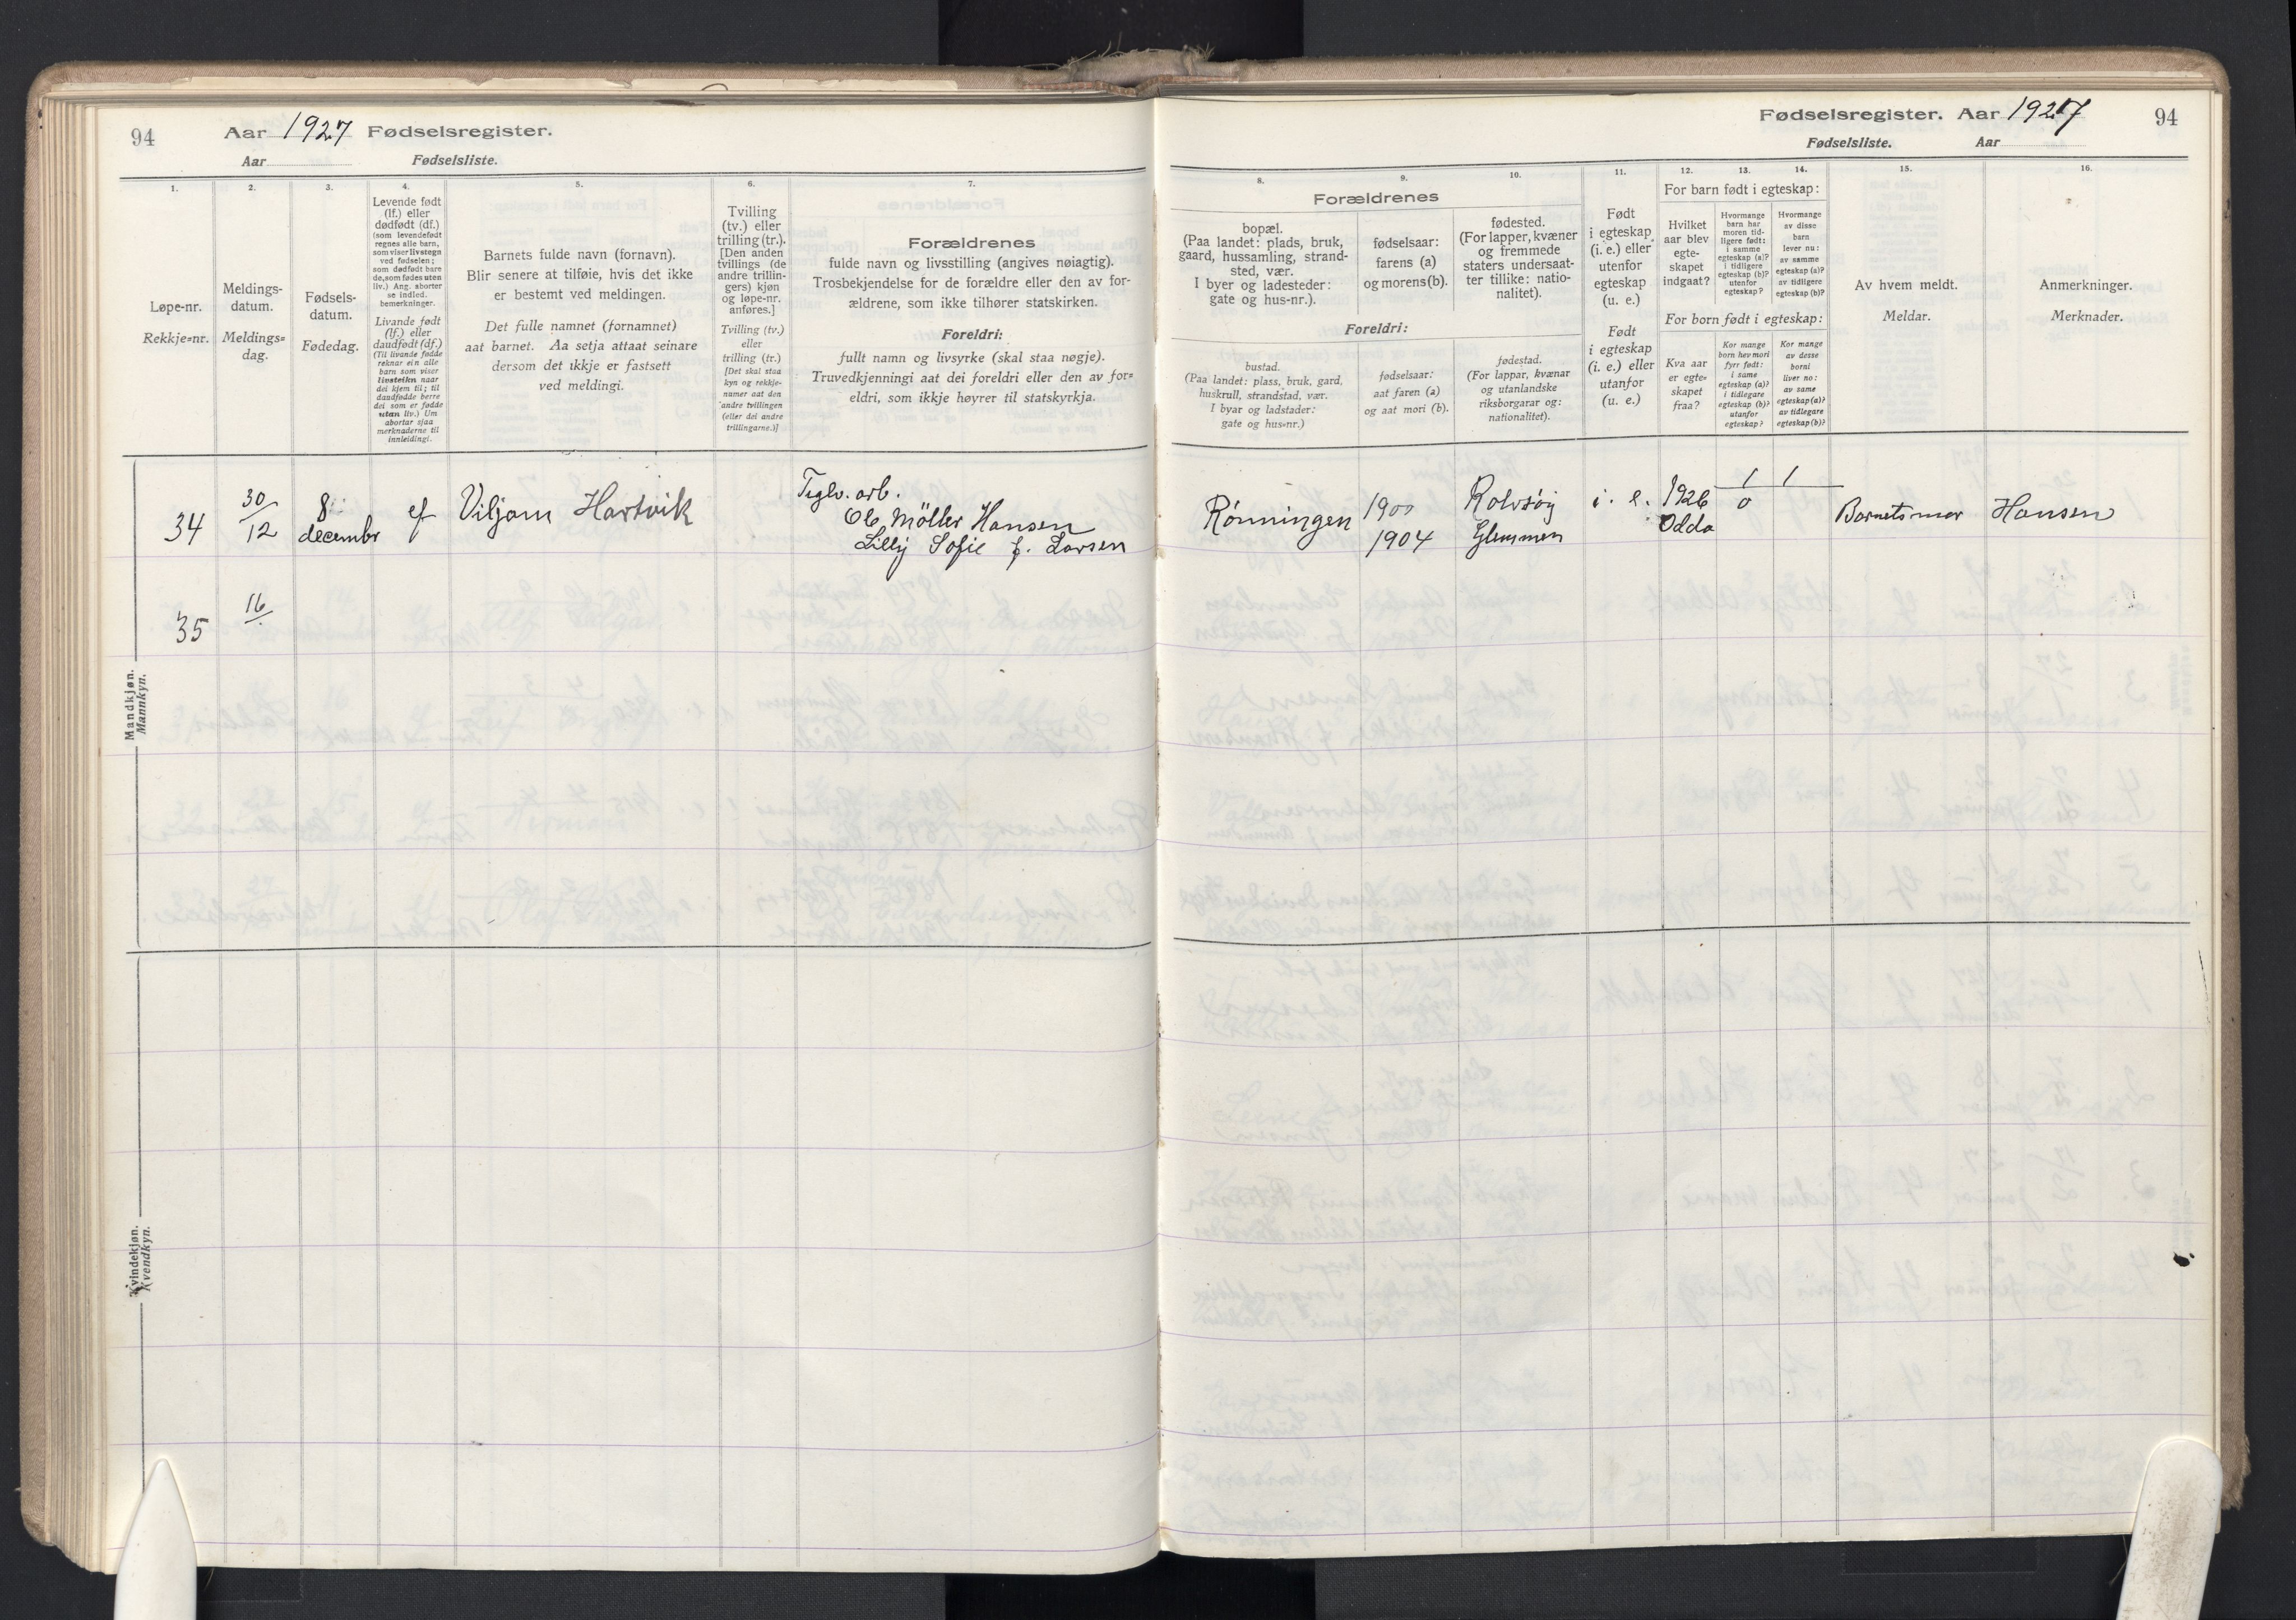 94
Aar 1927 Fødselsregister.
Aar Fødselsliste.
1.
2.
3.
4.
5.
6.
7.
Løpe-nr.
Rekkje=nr.
Meldings-
datum.
Meldings=
dag.
Fødsels-
datum.
Fødedag.
Levende født
(lf.) eller
dødfødt (df.)
(som levendefødt
regnes alle barn,
som viser livstegn
ved fødselen;
som dødfødt bare
de, som fødes uten
liv.) Ang. aborter
se indled.
bemerkninger.
Livande født
(lf.) eller
daudfødt (df.)
(Til livande fødde
reknar ein alle
barn som viser
livsteikn naar
dei kjem til; til
daudfødde berre
dei som er fødde
utan liv.) Um
abortar sjaa
merknaderne til
innleidingi.
Barnets fulde navn (fornavn).
Blir senere at tilføie, hvis det ikke
er bestemt ved meldingen.
Det fulle namnet (fornamnet)
aat barnet. Aa setja attaat seinare
dersom det ikkje er fastsett
ved meldingi.
Tvilling
(tv.) eller
trilling (tr.).
[Den anden
tvillings (de
andre trillin-
gers) kjøn
og løpe-nr.
anføres.]
Tvilling (tv.)
eller
trilling (tr.)
[Det skal staa
kyn og rekkje-
numer aat den
andre tvillingen
(eller dei andre
trillingarne.)]
Forældrenes
fulde navn og livsstilling (angives nøiagtig).
Trosbekjendelse for de forældre eller den av for-
ældrene, som ikke tilhører statskirken.
Foreldri:
fullt namn og livsyrke (skal staa nøgje).
Truvedkjenningi aat dei foreldri eller den av for=
eldri, som ikkje høyrer til statskyrkja.
Mandkjøn.
Mannkyn.
34
30/12
8
decembr
Viljam Hartvik
Teglv. arb.
Ole Möller Hansen
Lilly Sofie f. Larsen
35
16
Kvindekjøn.
Kvendkyn.
Fødselsregister. Aar 1927 94
Fødselsliste. Aar
8.
9.
10.
11.
12.
13.
14.
15.
16.
Forældrenes
bopæl.
(Paa landet: plads, bruk,
gaard, hussamling, strand-
sted, vær.
I byer og ladesteder:
gate og hus-nr.).
fødselsaar:
farens (a)
og morens (b).
fødested.
(For lapper, kvæner
og fremmede
staters undersaat-
ter tillike: natio-
nalitet).
Foreldri:
bustad.
(Paa landet: plass, bruk, gard,
huskrull, strandstad, vær.
I byar og ladstader:
gate og hus=nr.)
fødselsaar:
aat faren (a)
og aat mori (b).
fødestad.
(For lappar, kvænar
og utanlandske
riksborgarar og:
nationalitet).
Født
i egteskap
(i. e.) eller
utenfor
egteskap
(u. e.)
Født
i egteskap
(i. e.) eller
utanfor
(u. e.)
For barn født i egteskap:
Hvilket
aar blev
egte-
skapet
indgaat?
Hvormange
barn har
moren tid-
ligere født:
i samme
egteskap (a)?
i tidligere
egteskap (b)?
utenfor
egteskap?
Hvormange
av disse
barn
lever nu:
av samme
egteskap (a)?
av tidligere
egteskap (b)?
For born født i egteskap:
Kva aar
er egte=
skapet
fraa?
Kor mange
born hev mori
fyrr født:
i same
egteskap (a)?
i tidlegare
egteskap (b)?
utanfor
egteskap?
Kor mange
av desse
borni
liver no:
av same
egteskap (a)?
av tidlegare
egteskap (b)?
Av hvem meldt.
Meldar.
Anmerkninger.
Merknader.
Rønningen
1900
1904
Rolvsøy
Glemmen
i. e.
1926
Odda
1 1
0
Barnets mor
Hansen